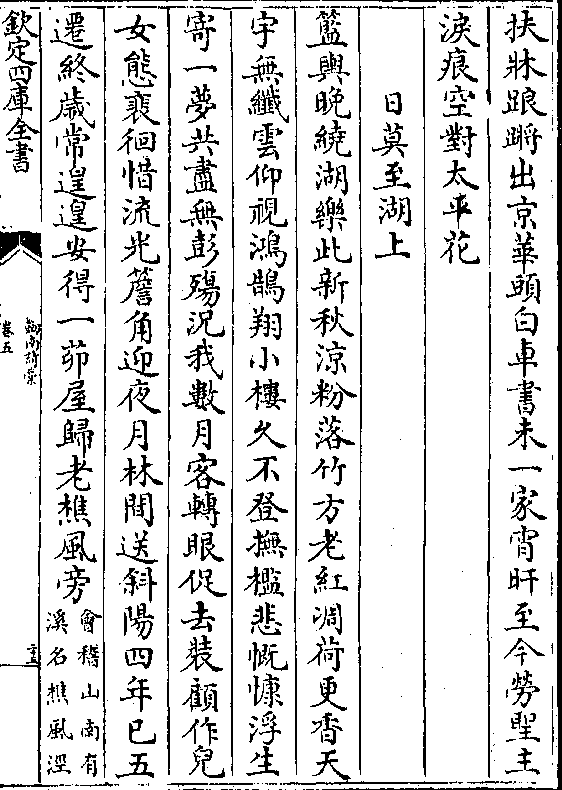 扶牀踉蹡出京華頭白車書未一家宵旰至今勞聖主
淚痕空對太平花
日莫至湖上
籃輿晚繞湖樂此新秋涼粉落竹方老紅凋荷更香天
宇無纖雲仰視鴻鵠翔小樓久不登撫檻悲慨慷浮生
寄一夢共盡無彭殤況我數月客轉眼促去裝顧作兒
女態裵徊惜流光簷角迎夜月林間送斜陽四年已五
遷終歲常遑遑安得一茆屋歸老樵風旁會稽山南有
溪名樵風涇
欽定四庫全書
劔南詩稾
卷五